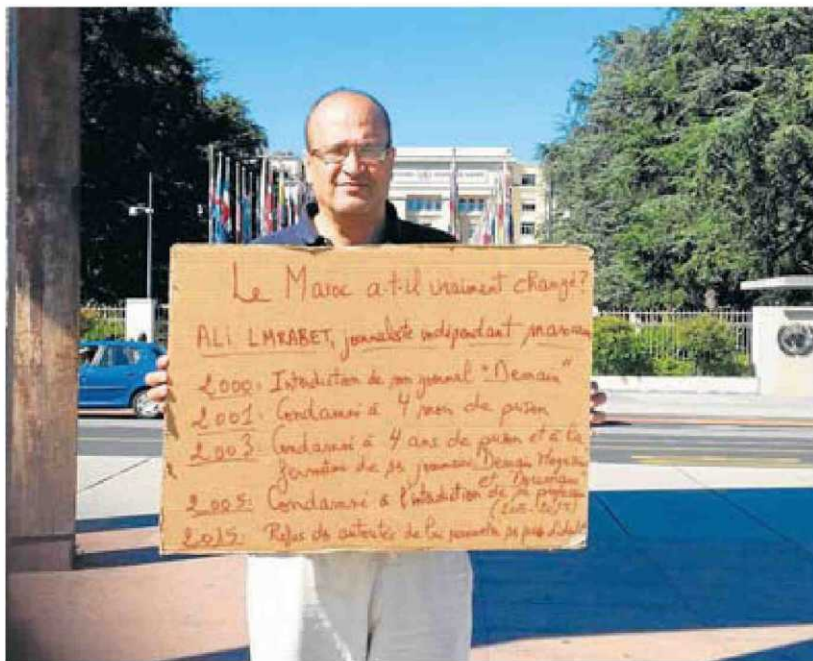 Le Maroc a-t-il vraiment changé?
ALI LMRABET, journaliste indépendant marocain
2000: Interdiction de son journal "Demain"
2001: Condamné à 4 mois de prison
2003: Condamné à 4 ans de prison et à la
fermeture de ses journaux Demain Magazine
et Doumane
2005: Condamné à l'interdiction de sa profession
(2005-2015)
2015: Refus des autorités de lui ses